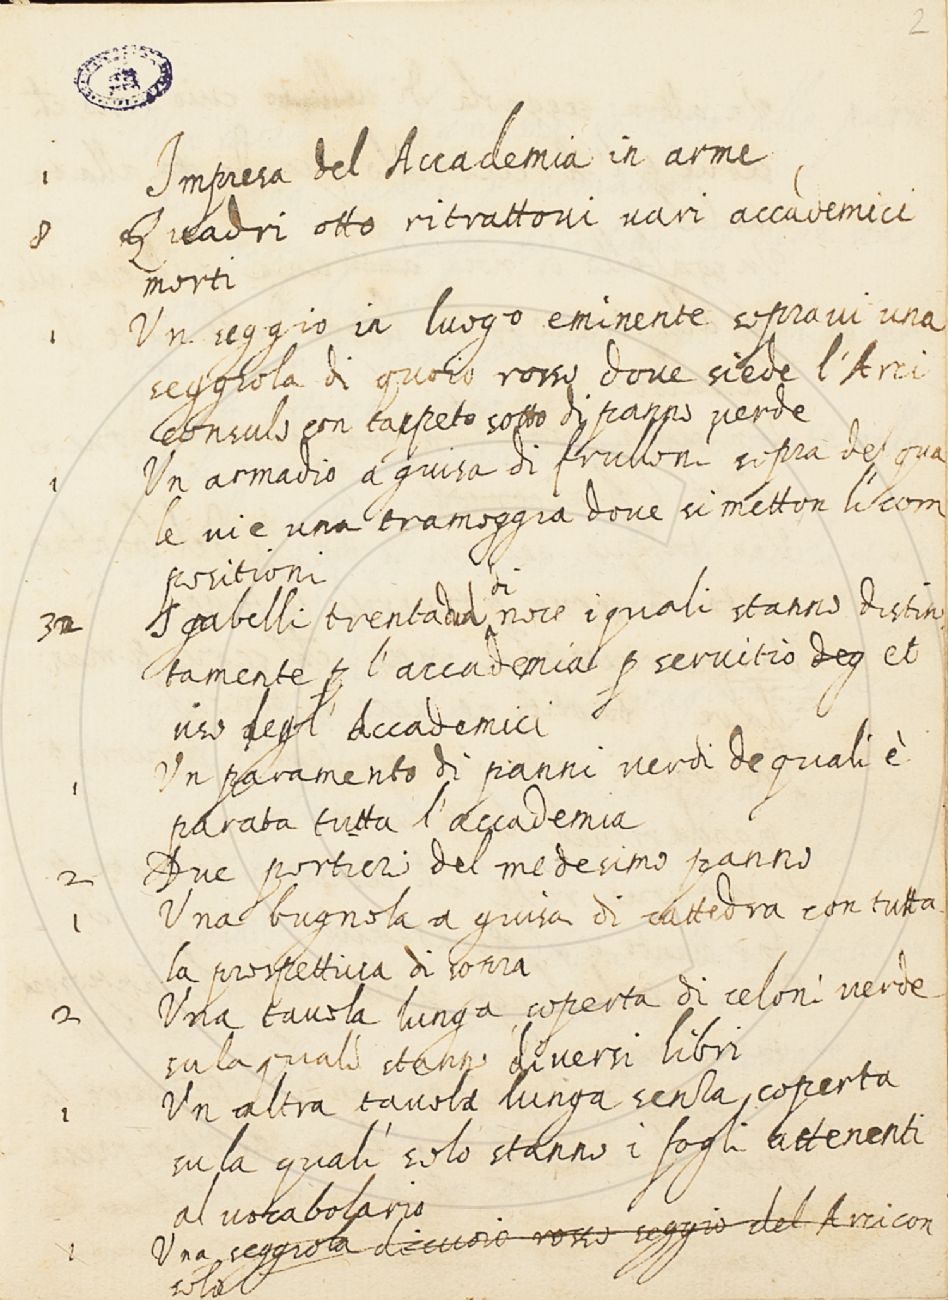 2
1 Impresa del Accademia in arme
8 Quadri otto ritrattoui uari accademici
morti
1 Vn seggio in luogo eminente soprauui una
seggiola di quoio rosso doue siede l'Arci
consulo con tappeto sotto di panno uerde
1 Vn armadio a guisa di frulloni sopra del qua
le ui e una tramoggia doue si metton li com
positioni
32 Sgabelli trentadua di noce i quali stanno distin
tamente p l'accademia p seruitio deg et
uso degl' Accademici
1 Vn paramento di panni uerdi de quali è
parata tutta l'accademia
2 Due portieri del medesimo panno
1 Vna bugnola a guisa di cattedra con tutta
la prospettiua di sopra
2 Vna tauola lunga coperta di celoni uerde
su la quali stanno diuersi libri
1 Vn altra tauola lunga senza coperta
su la quali solo stanno i fogli attenenti
al uocabolario
1 Vna seggiola di cuoio rosso seggio del Arcicon
solo